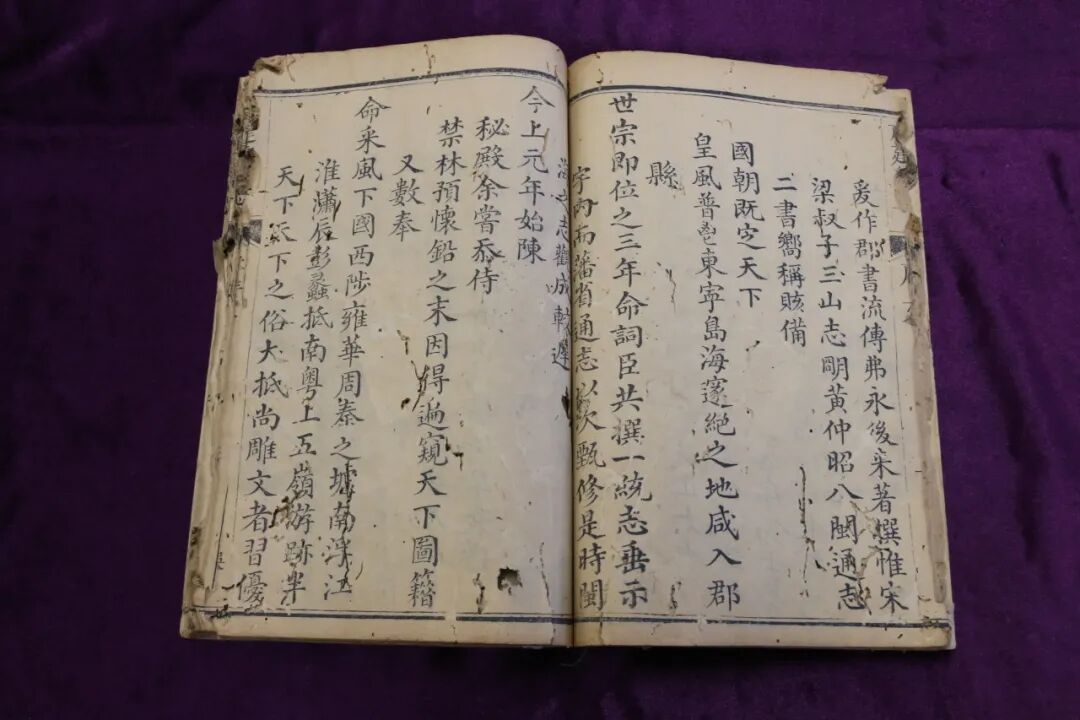 爰作郡書流傳弗永後来著撰惟宋
梁叔子三山志明黃仲昭八閩通志
二書嚮稱賅備
國朝既定天下
皇風普鬯東寧島海邃絕之地咸入郡
縣
世宗即位之三年命詞臣共撰一統志垂示
宇內而藩省通志以次甄修是時閩
海之志觀成較遲
今上元年始陳
秘殿余嘗忝侍
禁林預懷鉛之末因得遍窺天下圖籍
又數奉
命采風下國西陟雍華周秦之墟南浮江
淮瀟辰彭蠡抵南粵上五嶺游跡半
天下天下之俗大抵尚雕文者習優